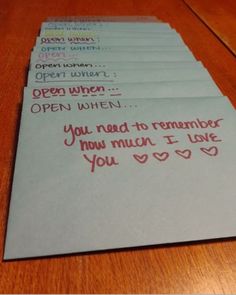 OPEN WHEN:
OPEN WHEN...
OPEN WHEN:
OPEN WHEN...
OPEN WHEN...
OPEN WHEN:
OPEN WHEN...
OPEN WHEN...
You need to remember
how much I LOVE
You ♡ ♡ ♡ ♡